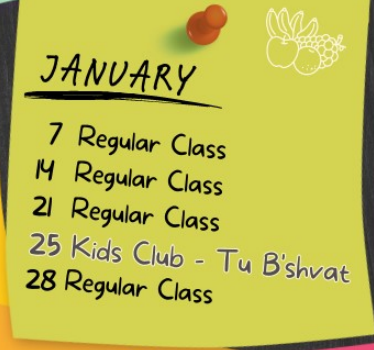 JANUARY
7 Regular Class
14 Regular Class
21 Regular Class
25 Kids Club - Tu B'shvat
28 Regular Class